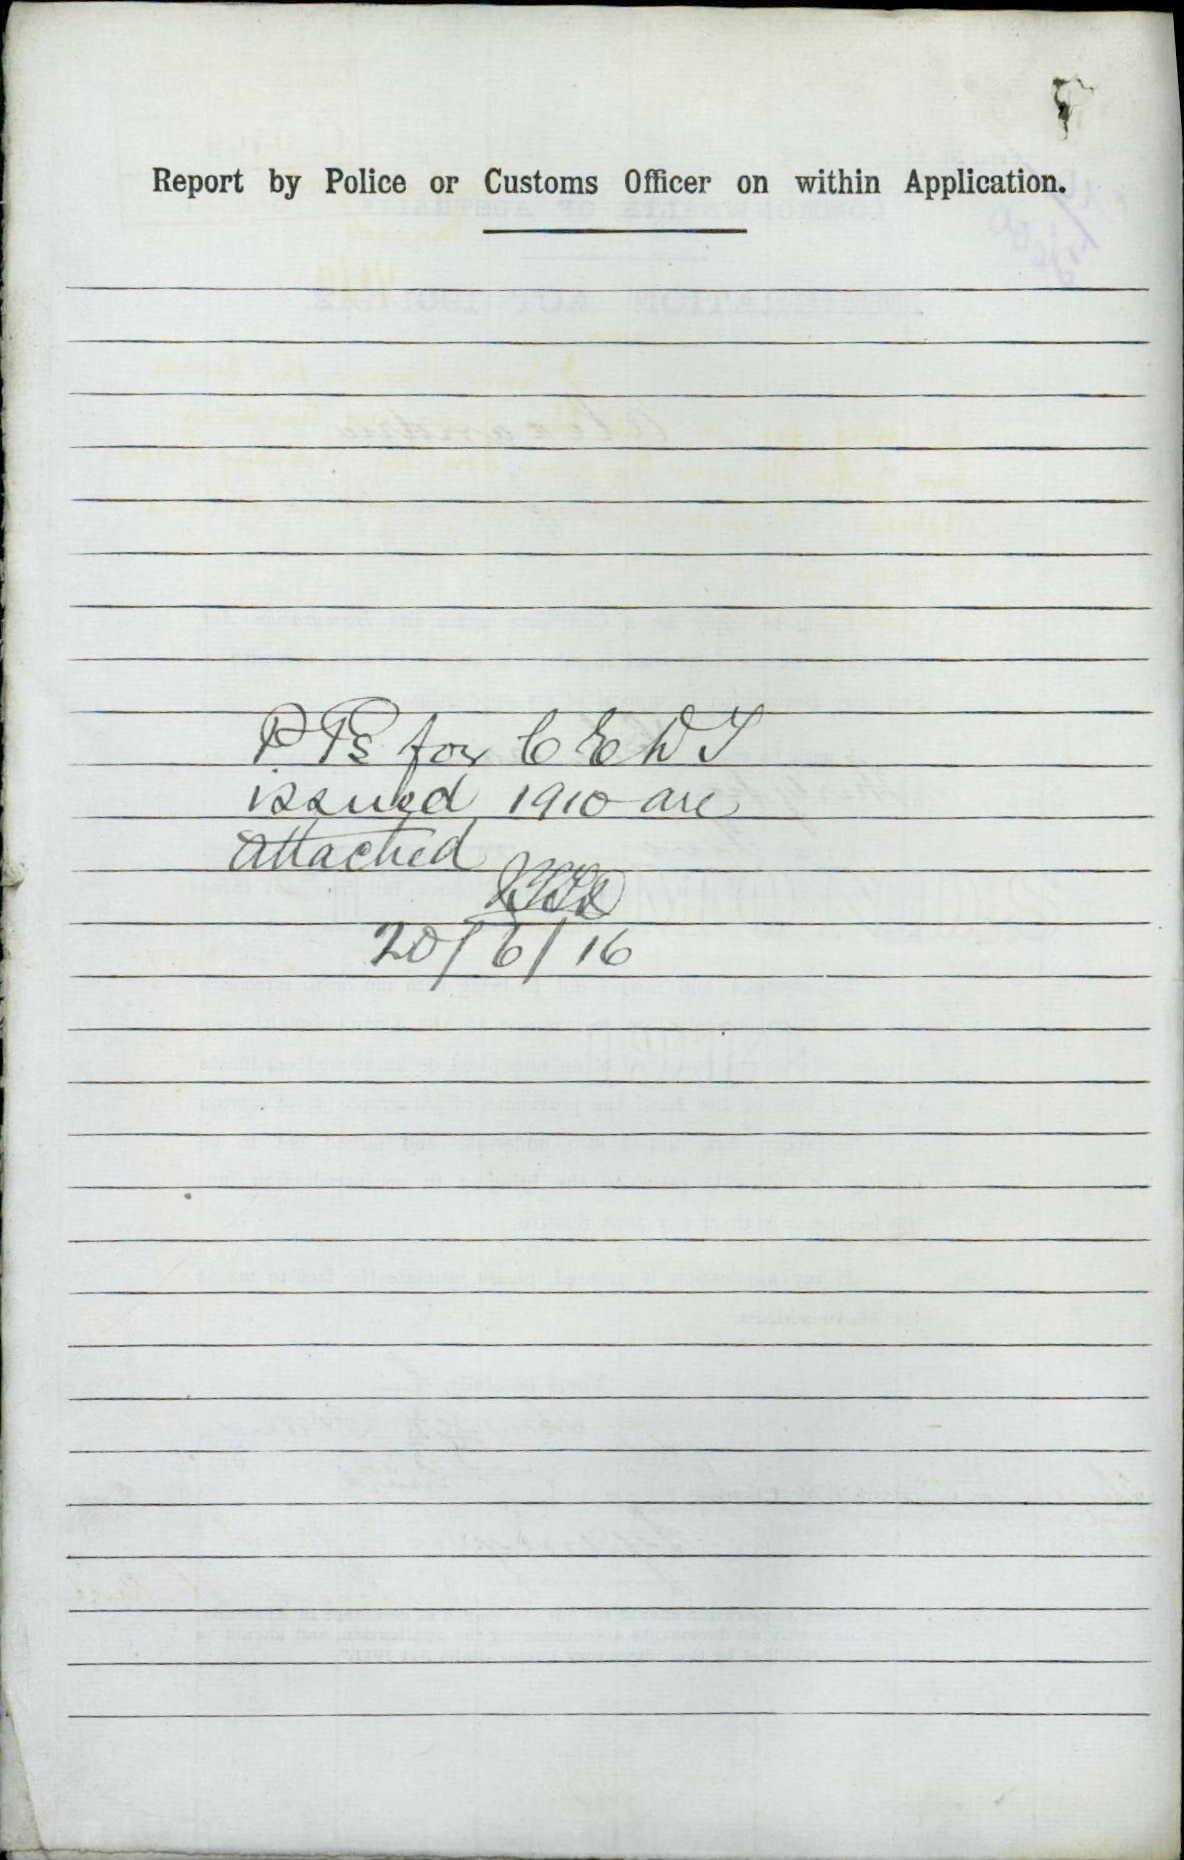 Report by Police or Customs Officer on within Application.
P Ps for C E D T
issued 1910 are
attached
20/6/16